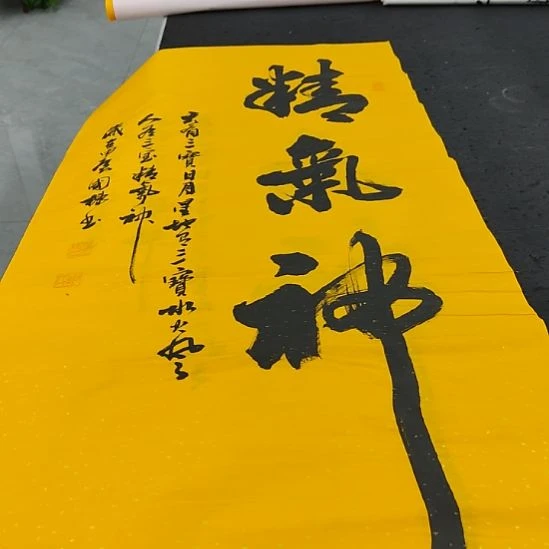 精氣神
天有三寶日月星地有三寶水火風
人有三宝精氣神
國林書